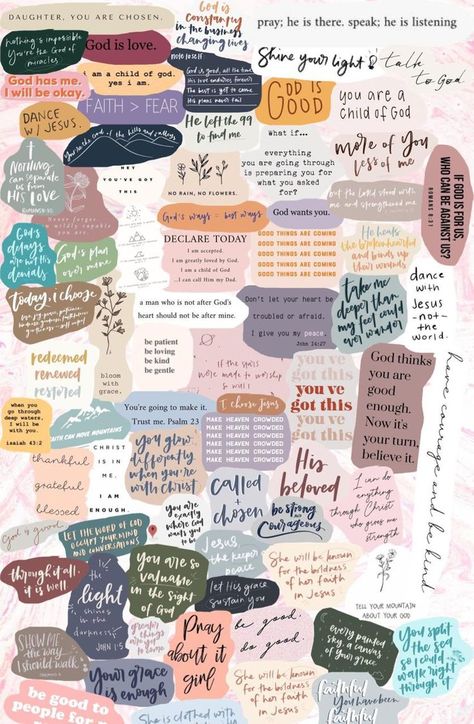 DAUGHTER, YOU ARE CHOSEN.
God is
constantly
in the business
of changing lives
pray; he is there. speak; he is listening
nothing's impossible
You're the God of
miracles
God is love.
note to self
God is good, all the time
His love endures forever
The best is yet to come
His plans never fail
Shine your light &
talk
to God.
God has me.
I will be okay.
i am a child of god.
yes i am.
FAITH > FEAR
GOD IS
GOOD
you are a
child of God
DANCE
W/ JESUS.
You're the God of the hills and valleys
He left the 99
to find me
What if...
everything
you are going through
is preparing you for
what you
asked for?
more of You
less of me
IF GOD IS FOR US,
WHO CAN BE AGAINST US?
ROMANS 8:31
NOTHING
can separate
us from
HIS LOVE
HEY
YOU'VE
GOT THIS
NO RAIN, NO FLOWERS.
but the Lord stood with
me and strengthened me
Never forget
God's ways = best ways
God wants you.
God's
delays
are not His
denials
God's plan
over mine
DECLARE TODAY
I am accepted.
I am greatly loved by God.
I am a child of God
...I can call Him my Dad.
GOOD THINGS ARE COMING
GOOD THINGS ARE COMING
GOOD THINGS ARE COMING
GOOD THINGS ARE COMING
GOOD THINGS ARE COMING
He heals
the brokenhearted
and binds up
their wounds
dance
with
Jesus
-not-
the
world.
today, i choose
a man who is not after God's
heart should not be after mine.
Don't let your heart be
troubled or afraid.
I give you my peace.
John 14:27
take me
deeper than
my feet could
ever wander
redeemed
renewed
restored
bloom
with
grace.
be patient
be loving
be kind
be gentle
if the stars
were made to worship
so will i
you've
got this
you've
got this
you've
got this
God thinks
you are
good
enough.
Now it's
your turn,
believe it.
have courage and be kind
when you
go through
deep waters,
I will be
with you.
isaiah 43:2
FAITH CAN MOVE MOUNTAINS
You're going to make it.
Trust me. Psalm 23
I choose Jesus
MAKE HEAVEN CROWDED
MAKE HEAVEN CROWDED
MAKE HEAVEN CROWDED
MAKE HEAVEN CROWDED
MAKE HEAVEN CROWDED
thankful
grateful
blessed
CHRIST
IS IN
ME
I AM
ENOUGH.
you glow
differently
when you're
with Christ
His
beloved
I can do
anything
through Christ
who gives me
strength
God is good.
you are
exactly
where God
wants you
to be
called
+
chosen
be strong
courageous
LET THE WORD OF GOD
OCCUPY YOUR MIND
AND CONVERSATIONS
Jesus
the keeper
of
peace
She will be known
for the boldness
of her faith
in Jesus
through it all,
it is well.
the
light
shines
in the
darkness
JOHN 1:5
you are so
valuable
in the sight
of God
let His grace
sustain you
TELL YOUR MOUNTAIN
ABOUT YOUR GOD
SHOW ME
the way
I should walk
greater
things
are yet
to come
Pray
about it
girl
be good.
do good.
every painted
sky a canvas
of Your grace
You split
the sea
so I could
walk right
through it
Your grace
is enough
She will be known
for the boldness
of her faith
in Jesus
faithful
You have been
faithful
be good to
people for
She is clothed with